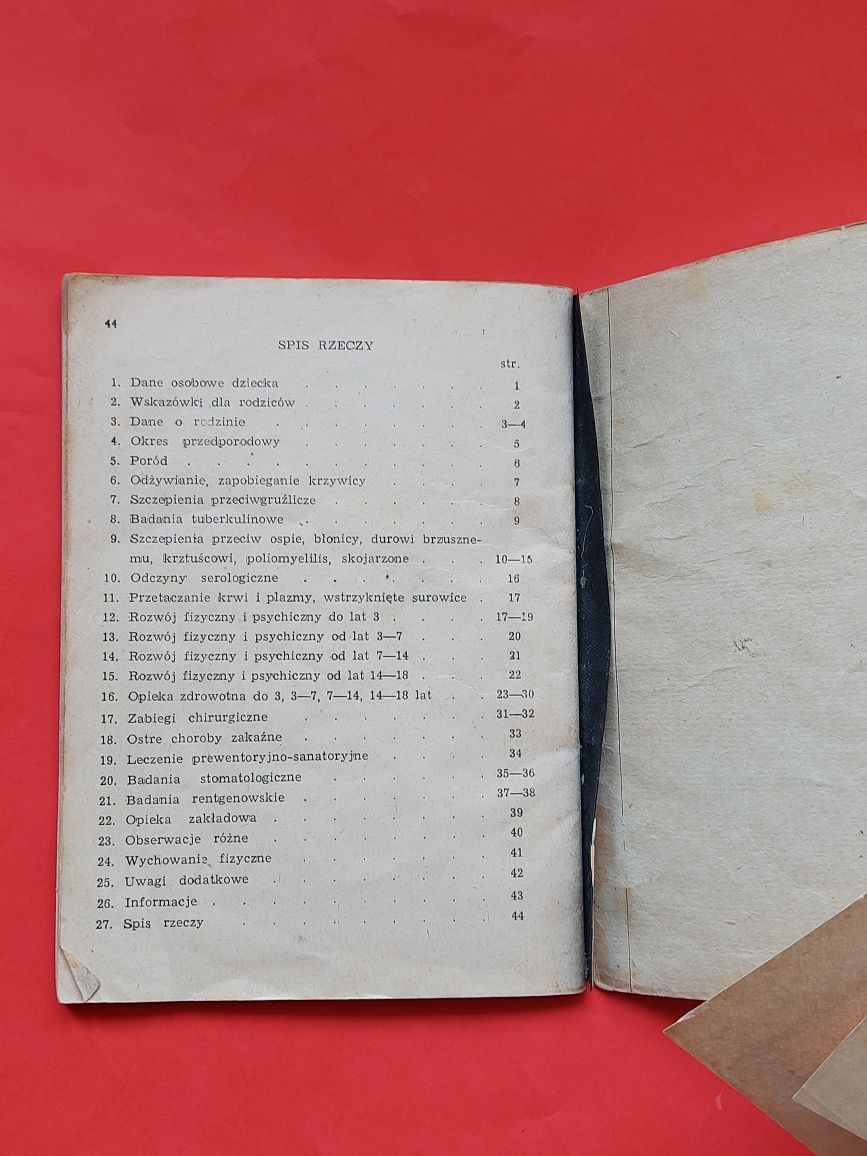 44
SPIS RZECZY
str.
1. Dane osobowe dziecka . . . . . . . 1
2. Wskazówki dla rodziców . . . . . . . 2
3. Dane o rodzinie . . . . . . . 3—4
4. Okres przedporodowy . . . . . . . 5
5. Poród . . . . . . . . . . 6
6. Odżywianie, zapobieganie krzywicy . . . . . 7
7. Szczepienia przeciwgruźlicze . . . . . . 8
8. Badania tuberkulinowe . . . . . . . 9
9. Szczepienia przeciw ospie, błonicy, durowi brzuszne-
mu, krztuścowi, poliomyelilis, skojarzone . . . 10—15
10. Odczyny serologiczne . . . . . . . 16
11. Przetaczanie krwi i plazmy, wstrzyknięte surowice . 17
12. Rozwój fizyczny i psychiczny do lat 3 . . . . 17—19
13. Rozwój fizyczny i psychiczny od lat 3—7 . . . 20
14. Rozwój fizyczny i psychiczny od lat 7—14 . . . 21
15. Rozwój fizyczny i psychiczny od lat 14—18 . . . 22
16. Opieka zdrowotna do 3, 3—7, 7—14, 14—18 lat . . 23—30
17. Zabiegi chirurgiczne . . . . . . . 31—32
18. Ostre choroby zakaźne . . . . . . . 33
19. Leczenie prewentoryjno-sanatoryjne . . . . . 34
20. Badania stomatologiczne . . . . . . 35—36
21. Badania rentgenowskie . . . . . . . 37—38
22. Opieka zakładowa . . . . . . . . 39
23. Obserwacje różne . . . . . . . . 40
24. Wychowanie fizyczne . . . . . . . 41
25. Uwagi dodatkowe . . . . . . . . 42
26. Informacje . . . . . . . . . . 43
27. Spis rzeczy . . . . . . . . . 44